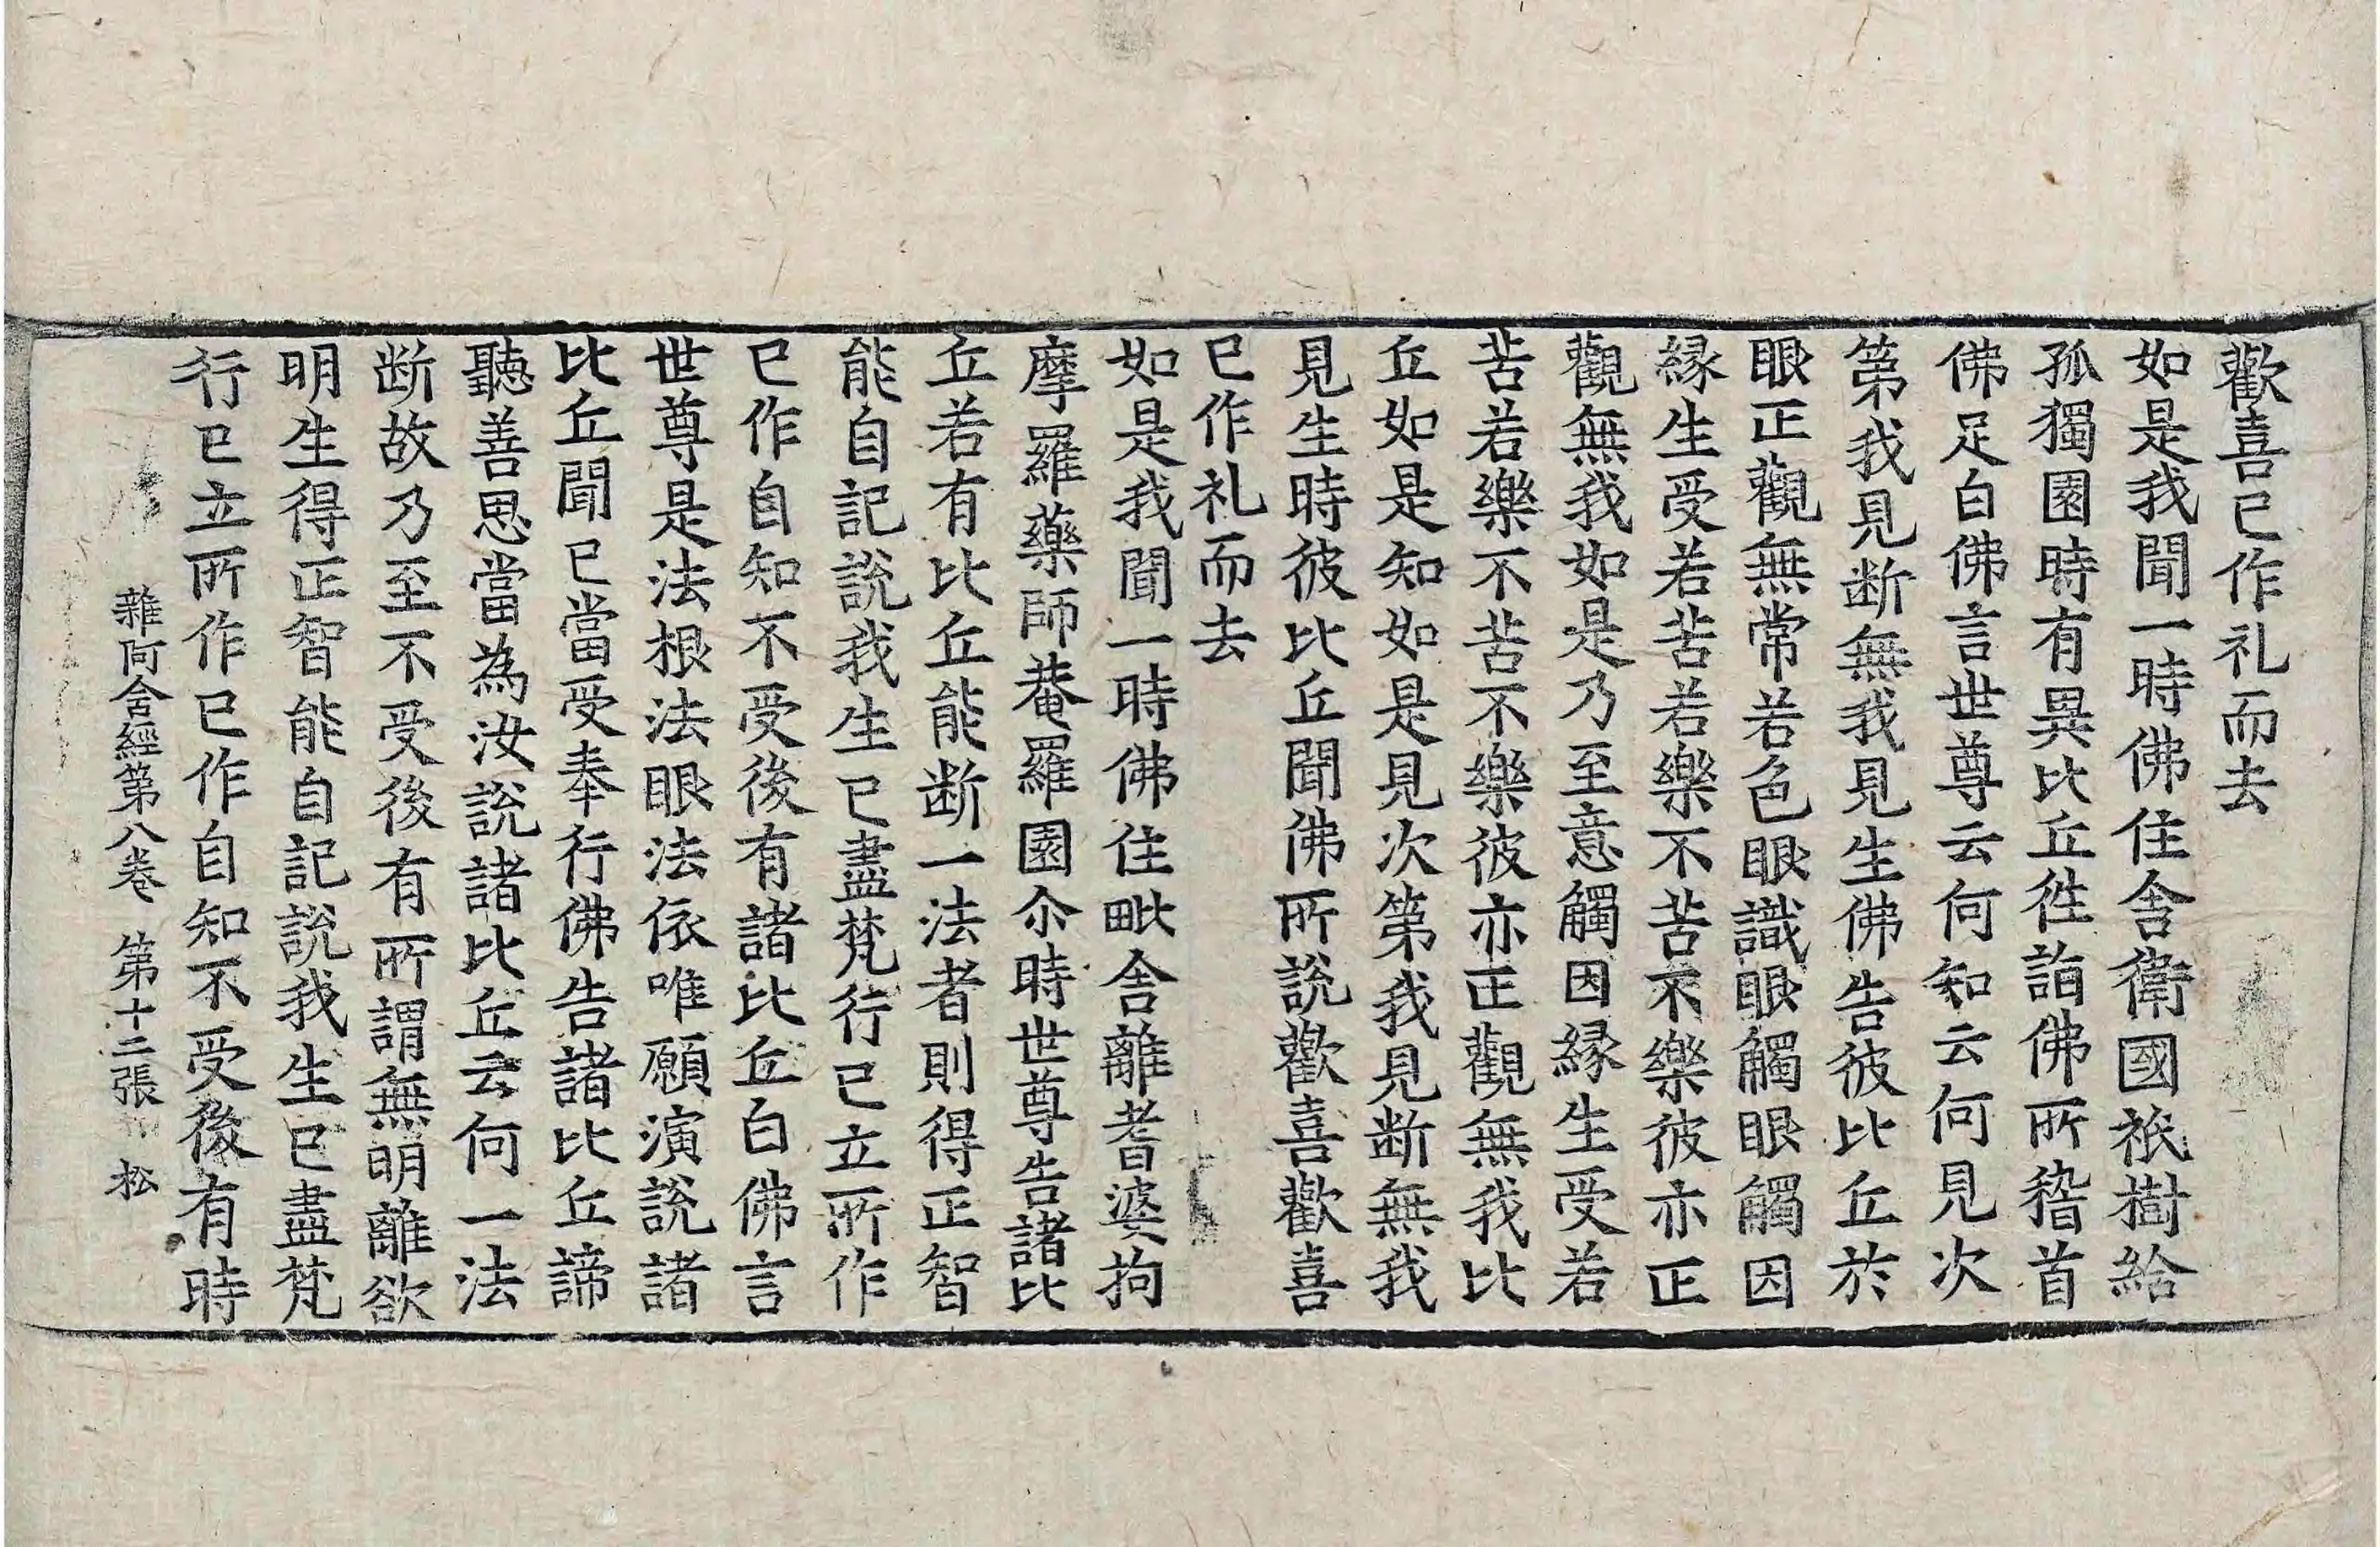 歡喜已作礼而去
如是我聞一時佛住舍衛國祇樹給
孤獨園時有異比丘徃詣佛所稽首
佛足白佛言世尊云何知云何見次
第我見断無我見生佛告彼比丘於
眼正觀無常若色眼識眼觸眼觸因
縁生受若苦若樂不苦不樂彼亦正
觀無我如是乃至意觸因縁生受若
苦若樂不苦不樂彼亦正觀無我比
丘如是知如是見次第我見断無我
見生時彼比丘聞佛所說歡喜歡喜
已作礼而去
如是我聞一時佛住毗舍離耆婆拘
摩羅藥師菴羅園尒時世尊告諸比
丘若有比丘能断一法者則得正智
能自記說我生已盡梵行已立所作
已作自知不受後有諸比丘白佛言
世尊是法根法眼法依唯願演說諸
比丘聞已當受奉行佛告諸比丘諦
聽善思當為汝說諸比丘云何一法
断故乃至不受後有所謂無明離欲
明生得正智能自記說我生已盡梵
行已立所作已作自知不受後有時
雜阿含經第八卷 第十二張 松